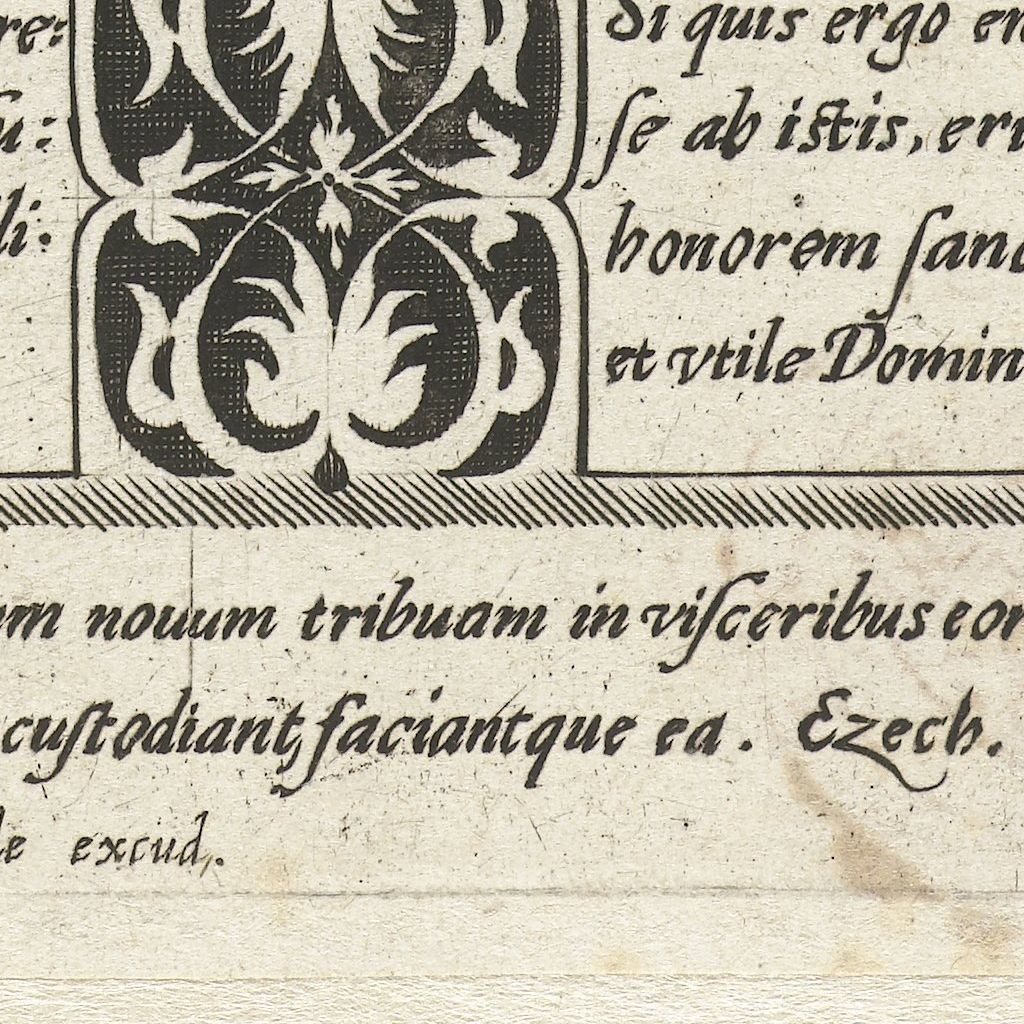 re:
ſu:
li:
Si quis ergo em
ſe ab istis, eri
honorem ſanc
et vtile Domin
um nouum tribuam in viſceribus eor
cuſtodiant, faciantque ea. Ezech.
le excud.